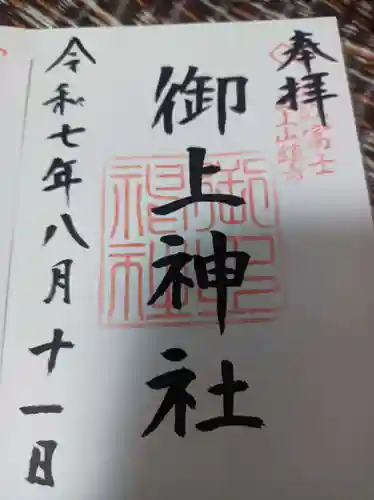 奉拝
御上神社
令和七年八月十一日